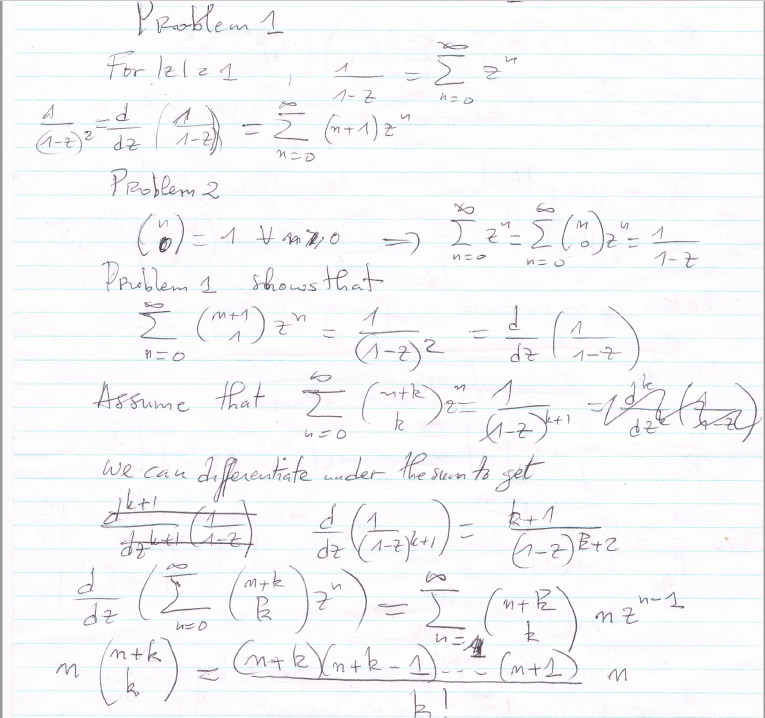 Problem 1
For |z| < 1 , 1/(1-z) = ∑_{n=0}^{∞} z^n
1/(1-z)^2 = d/dz (1/(1-z)) = ∑_{n=0}^{∞} (n+1) z^n
Problem 2
(n 0) = 1 ∀ n ≥ 0 ⇒ ∑_{n=0}^{∞} z^n = ∑_{n=0}^{∞} (n 0) z^n = 1/(1-z)
Problem 1 shows that
∑_{n=0}^{∞} (n+1 1) z^n = 1/(1-z)^2 = d/dz (1/(1-z))
Assume that ∑_{n=0}^{∞} (n+k k) z^n = 1/(1-z)^{k+1} = d^k/dz^k (1/(1-z))
we can differentiate under the sum to get
d^{k+1}/dz^{k+1} (1/(1-z)) d/dz (1/(1-z)^{k+1}) = k+1/(1-z)^{k+2}
d/dz (∑_{n=0}^{∞} (n+k k) z^n) = ∑_{n=1}^{∞} (n+k k) n z^{n-1}
n (n+k k) = (n+k)(n+k-1)---(n+1)/k! n